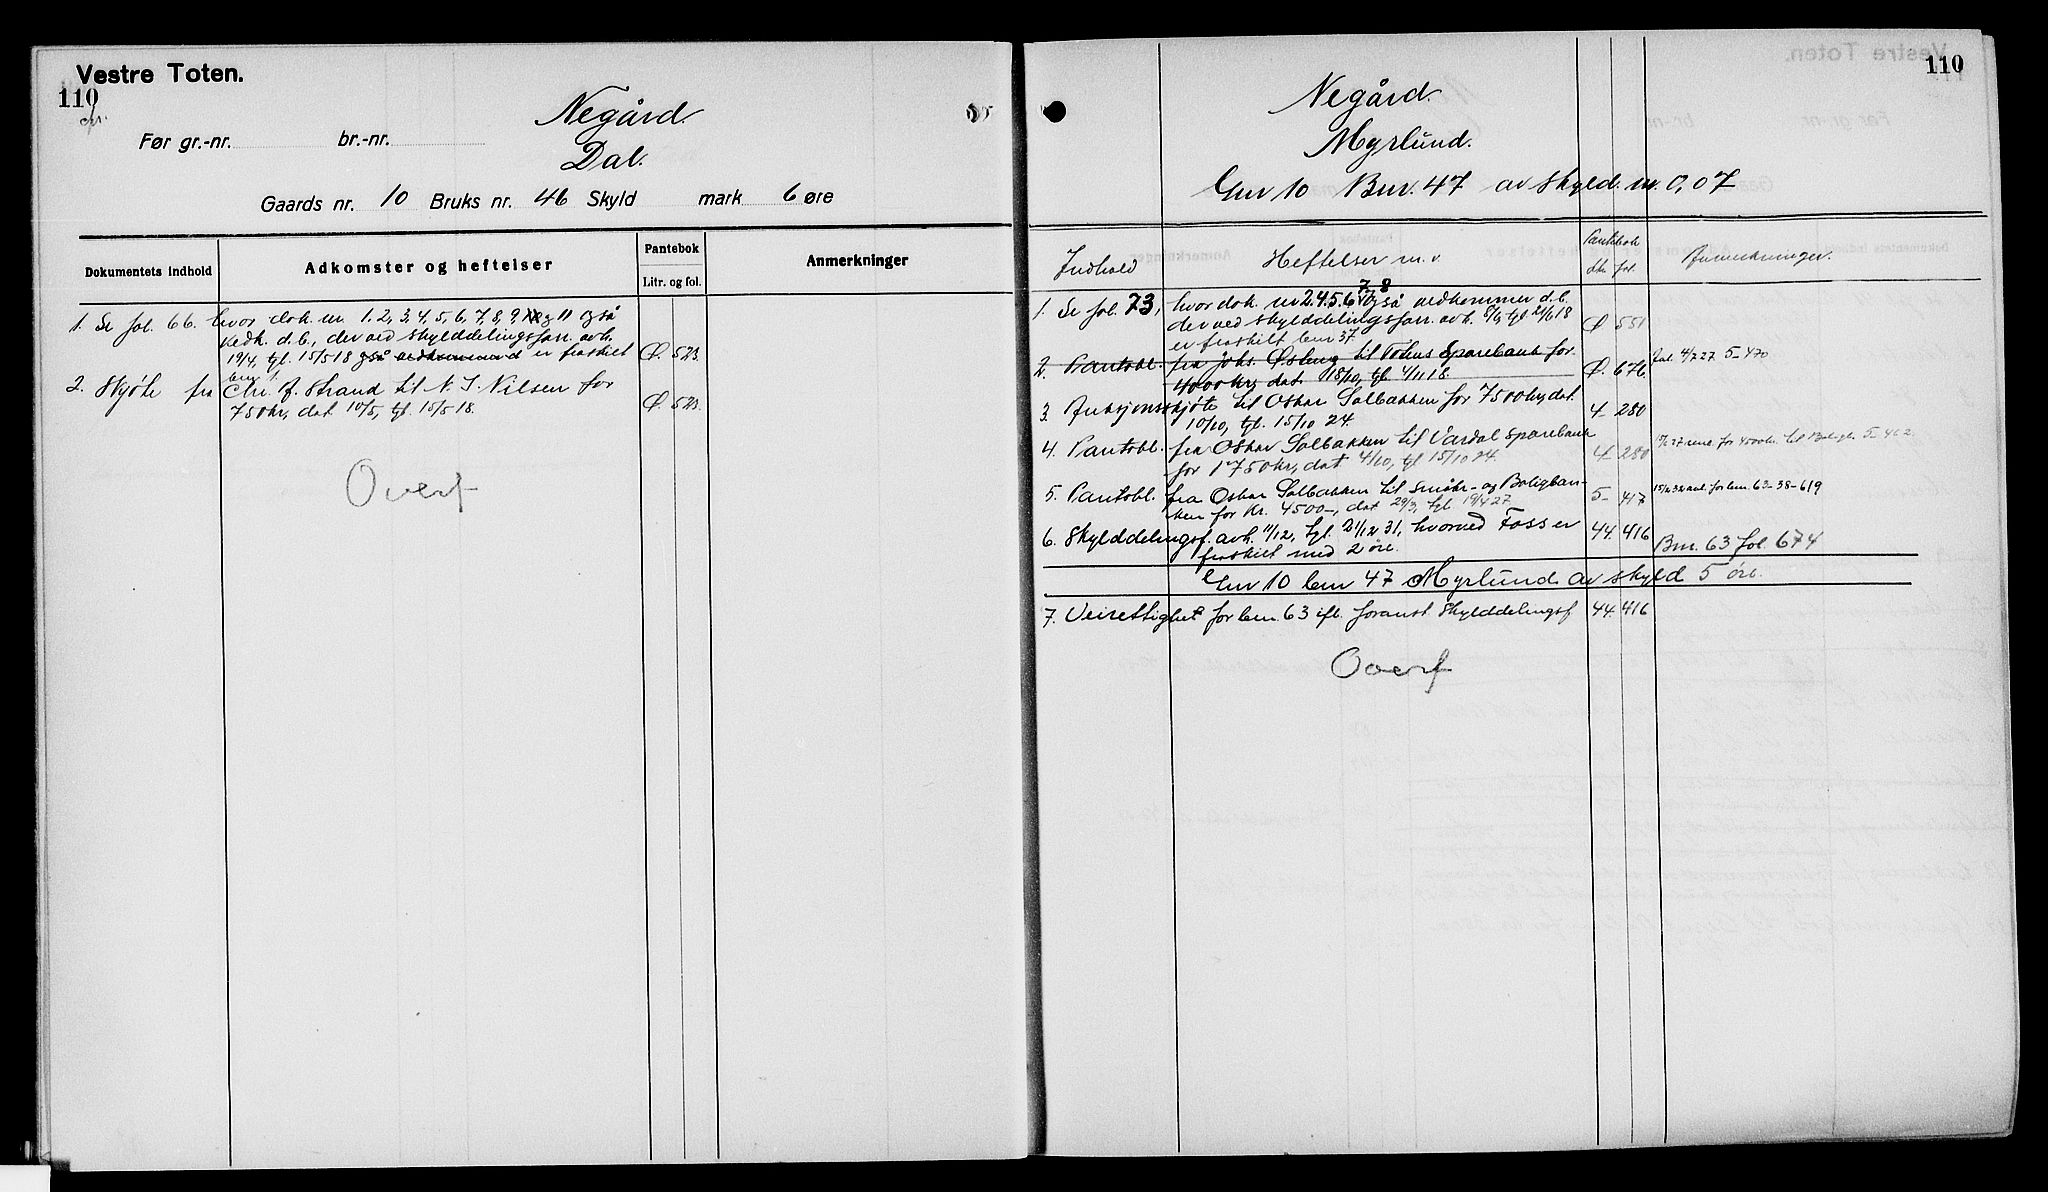 Vestre Toten.
110
Negård.
Før gr.-nr. br.-nr.
Dal.
Gaards nr. 10 Bruks nr. 46 Skyld mark 6 øre
Dokumentets indhold
Adkomster og heftelser
Pantebok
Litr. og fol.
Anmerkninger
1. Se fol. 66. hvor dok. nr. 1. 2, 3, 4, 5, 6, 7, 8, 9, og 11 også
vedk. d.b., der ved skylddelingsforr. avh.
19/4, tgl. 15/5 18 også vedkommend er fraskilt Q. 523.
bnr. 1.
2. Skjøte fra Chr. J. Strand til N. J. Nilsen for
750 kr, dat 10/5, tgl. 15/5 18. Q. 523.
Overf
110
Negård.
Myrlund.
Gnr 10 Bnr. 47 av skyld. m. 0,07
Indhold
Heftelser m. v.
Pantebok
litr. fol.
Anmerkninger.
7. 8
1. Se fol. 73, hvor dok. nr 2. 4. 5. 6 også vedkommer d.b.
der ved skylddelingsforr. avh. 8/6 tgl 21/6 18 Q 551
er fraskilt bnr 37.
2. Pantobl. fra Johs. Østeng til Totens Sparebank for Q. 676. Kval. 4/2 27 5-470
4000 kr, dat. 18/10, tgl. 4/11 18.
3. Auksjonsskjøte til Oskar Solbakken for 7500 kr, dat. 4- 280
10/10, tgl. 15/10 24.
4. Pantobl. fra Oskar Solbakken til Vardal Sparebank 4- 280
for 1750 kr, dat 4/10, tgl 15/10 24.
5. Pantobl. fra Oskar Solbakken til Småbr.- og Boligban- 5- 417 15/12 32 avl. for bnr. 63-38-619
ken for Kr. 4500-, dat 29/3, tgl 19/4 27
6. Skylddelingsf. avh. 11/12, tgl. 21/12 31, hvorved Foss er 44. 416 Bnr. 63 fol. 674
fraskilt med 2 øre.
Gnr 10 bnr 47 Myrlund av skyld 5 øre.
7. Veirettighet for bnr. 63 ifl. foranst skylddelingsf 44. 416
Overf